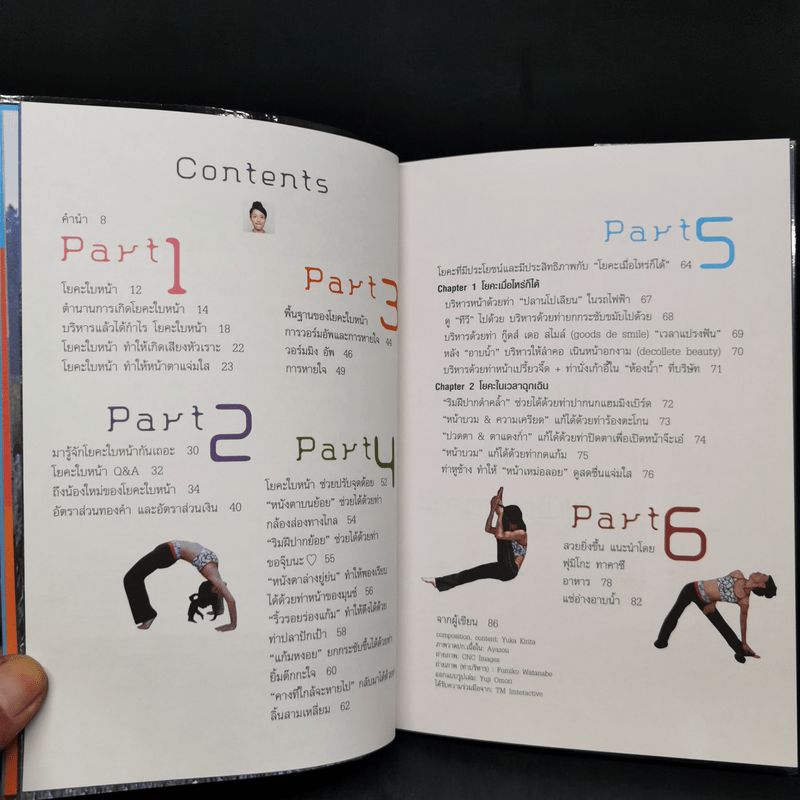 Contents
คำนำ 8
Part 1
โยคะใบหน้า 12
ตำนานการเกิดโยคะใบหน้า 14
บริหารแล้วได้กำไร โยคะใบหน้า 18
โยคะใบหน้า ทำให้เกิดเสียงหัวเราะ 22
โยคะใบหน้า ทำให้หน้าตาแจ่มใส 23
Part 2
มารู้จักโยคะใบหน้ากันเถอะ 30
โยคะใบหน้า Q&A 32
ถึงน้องใหม่ของโยคะใบหน้า 34
อัตราส่วนทองคำ และอัตราส่วนเงิน 40
Part 3
พื้นฐานของโยคะใบหน้า
การวอร์มอัพและการหายใจ 44
วอร์มมิง อัพ 46
การหายใจ 49
Part 4
โยคะใบหน้า ช่วยปรับจุดด้อย 52
"หนังตาบนย้อย" ช่วยได้ด้วยท่า
กล้องส่องทางไกล 54
"ริมฝีปากย้อย" ช่วยได้ด้วยท่า
ขอจุ๊บนะ♡ 55
"หนังตาล่างยู่ย่น" ทำให้พองเรียบ
ได้ด้วยท่าหน้าของมุนช์ 56
"ริ้วรอยร่องแก้ม" ทำให้ตึงได้ด้วย
ท่าปลาปักเป้า 58
"แก้มหงอย" ยกกระชับขึ้นได้ด้วยท่า
ยิ้มตึกกะใจ 60
"คางที่ใกล้จะหายไป" กลับมาได้ด้วยท่า
ลิ้นสามเหลี่ยม 62
Part 5
โยคะที่มีประโยชน์และมีประสิทธิภาพกับ "โยคะเมื่อไหร่ก็ได้" 64
Chapter 1 โยคะเมื่อไหร่ก็ได้
บริหารหน้าด้วยท่า "ปลานโปเลียน" ในรถไฟฟ้า 67
ดู "ทีวี" ไปด้วย บริหารด้วยท่ายกกระชับขมับไปด้วย 68
บริหารด้วยท่า กู๊ดส์ เดอ สไมล์ (goods de smile) "เวลาแปรงฟัน" 69
หลัง "อาบน้ำ" บริหารให้ลำคอ เนินหน้าอกงาม (decollete beauty) 70
บริหารด้วยท่าหน้าเปรี้ยวจี๊ด + ท่านั่งเก้าอี้ใน "ห้องน้ำ" ที่บริษัท 71
Chapter 2 โยคะในเวลาฉุกเฉิน
"ริมฝีปากดำคล้ำ" ช่วยได้ด้วยท่าปากนกแฮมมิงเบิร์ด 72
"หน้าบวม & ความเครียด" แก้ได้ด้วยท่าร้องตะโกน 73
"ปวดตา & ตาแดงก่ำ" แก้ได้ด้วยท่าปิดตาเพื่อเปิดหน้าจ๊ะเอ๋ 74
"หน้าบวม" แก้ได้ด้วยท่ากดแก้ม 75
ท่าหูช้าง ทำให้ "หน้าเหม่อลอย" ดูสดชื่นแจ่มใส 76
Part 6
สวยยิ่งขึ้น แนะนำโดย
ฟุมิโกะ ทาคาซึ
อาหาร 78
แช่อ่างอาบน้ำ 82
จากผู้เขียน 86
composition, content: Yuka Kirita
ภาพวาดปก,เนื้อใน: Ayazou
ถ่ายภาพ: CNC Images
ถ่ายภาพ (ท่าบริหาร) : Fumike Watanabe
ออกแบบรูปเล่ม: Yuji Omori
ได้รับความร่วมมือจาก: TM Interactive